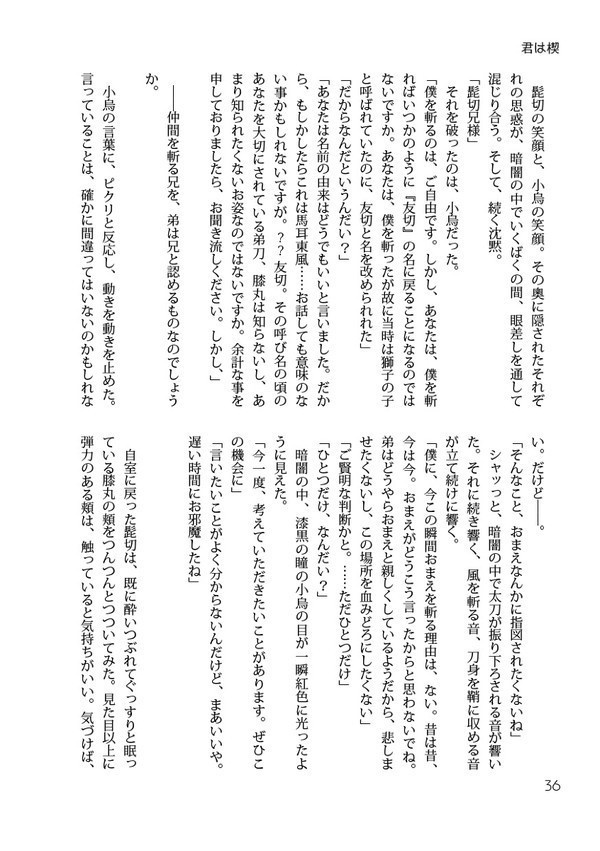 君は楔
髭切の笑顔と、小烏の笑顔。その奥に隠されたそれぞ
れの思惑が、暗闇の中でいくばくの間、眼差しを通して
混じり合う。そして、続く沈黙。
それを破ったのは、小烏だった。
「髭切兄様」
「僕を斬るのは、ご自由です。しかし、あなたは、僕を斬
ればいつかのように『友切』の名に戻ることになるのでは
ないですか。あなたは、僕を斬ったが故に当時は獅子の子
と呼ばれていたのに、友切と名を改められた」
「だからなんだというんだい？」
「あなたは名前の由来はどうでもいいと言いました。だか
ら、もしかしたらこれは馬耳東風……お話しても意味のな
い事かもしれないですが。？？友切。その呼び名の頃の
あなたを大切にされている弟刀、膝丸は知らないし、あ
まり知られたくないお姿なのではないですか。余計な事を
申しておりましたら、お聞き流しください。しかし、」
――仲間を斬る兄を、弟は兄と認めるものなのでしょう
か。
小烏の言葉に、ピクリと反応し、動きを動きを止めた。
言っていることは、確かに間違ってはいないのかもしれな
い。だけど――。
「そんなこと、おまえなんかに指図されたくないね」
シャッっと、暗闇の中で太刀が振り下ろされる音が響い
た。それに続き響く、風を斬る音、刀身を鞘に収める音
が立て続けに響く。
「僕に、今この瞬間おまえを斬る理由は、ない。昔は昔、
今は今。おまえがどうこう言ったからと思わないでね。
弟はどうやらおまえと親しくしているようだから、悲しま
せたくないし、この場所を血みどろにしたくない」
「ご賢明な判断かと。……ただひとつだけ」
「ひとつだけ、なんだい？」
暗闇の中、漆黒の瞳の小烏の目が一瞬紅色に光ったよ
うに見えた。
「今一度、考えていただきたいことがあります。ぜひこ
の機会に」
「言いたいことがよく分からないんだけど、まあいいや。
遅い時間にお邪魔したね」
自室に戻った髭切は、既に酔いつぶれてぐっすりと眠っ
ている膝丸の頬をつんつんとつついてみた。見た目以上に
弾力のある頬は、触っていると気持ちがいい。気づけば、
36